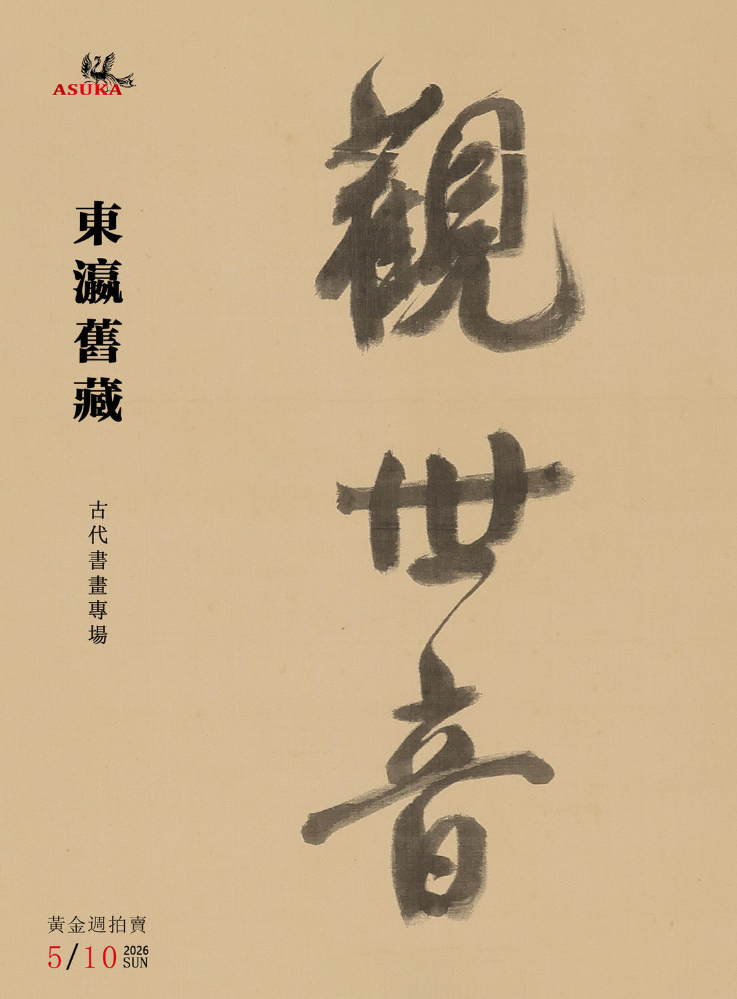 ASUKA
觀世音
東瀛舊藏
古代書畫專場
黃金週拍賣
5/10 2026 SUN